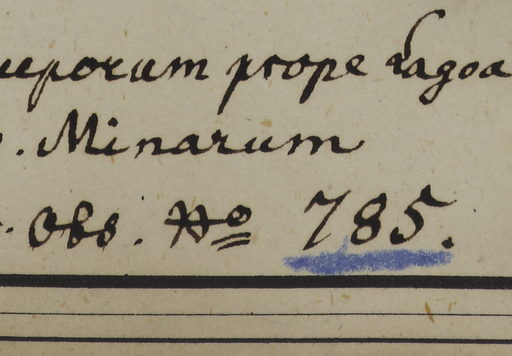 prope Lagoa
. Minarum
. Obs. No 785.